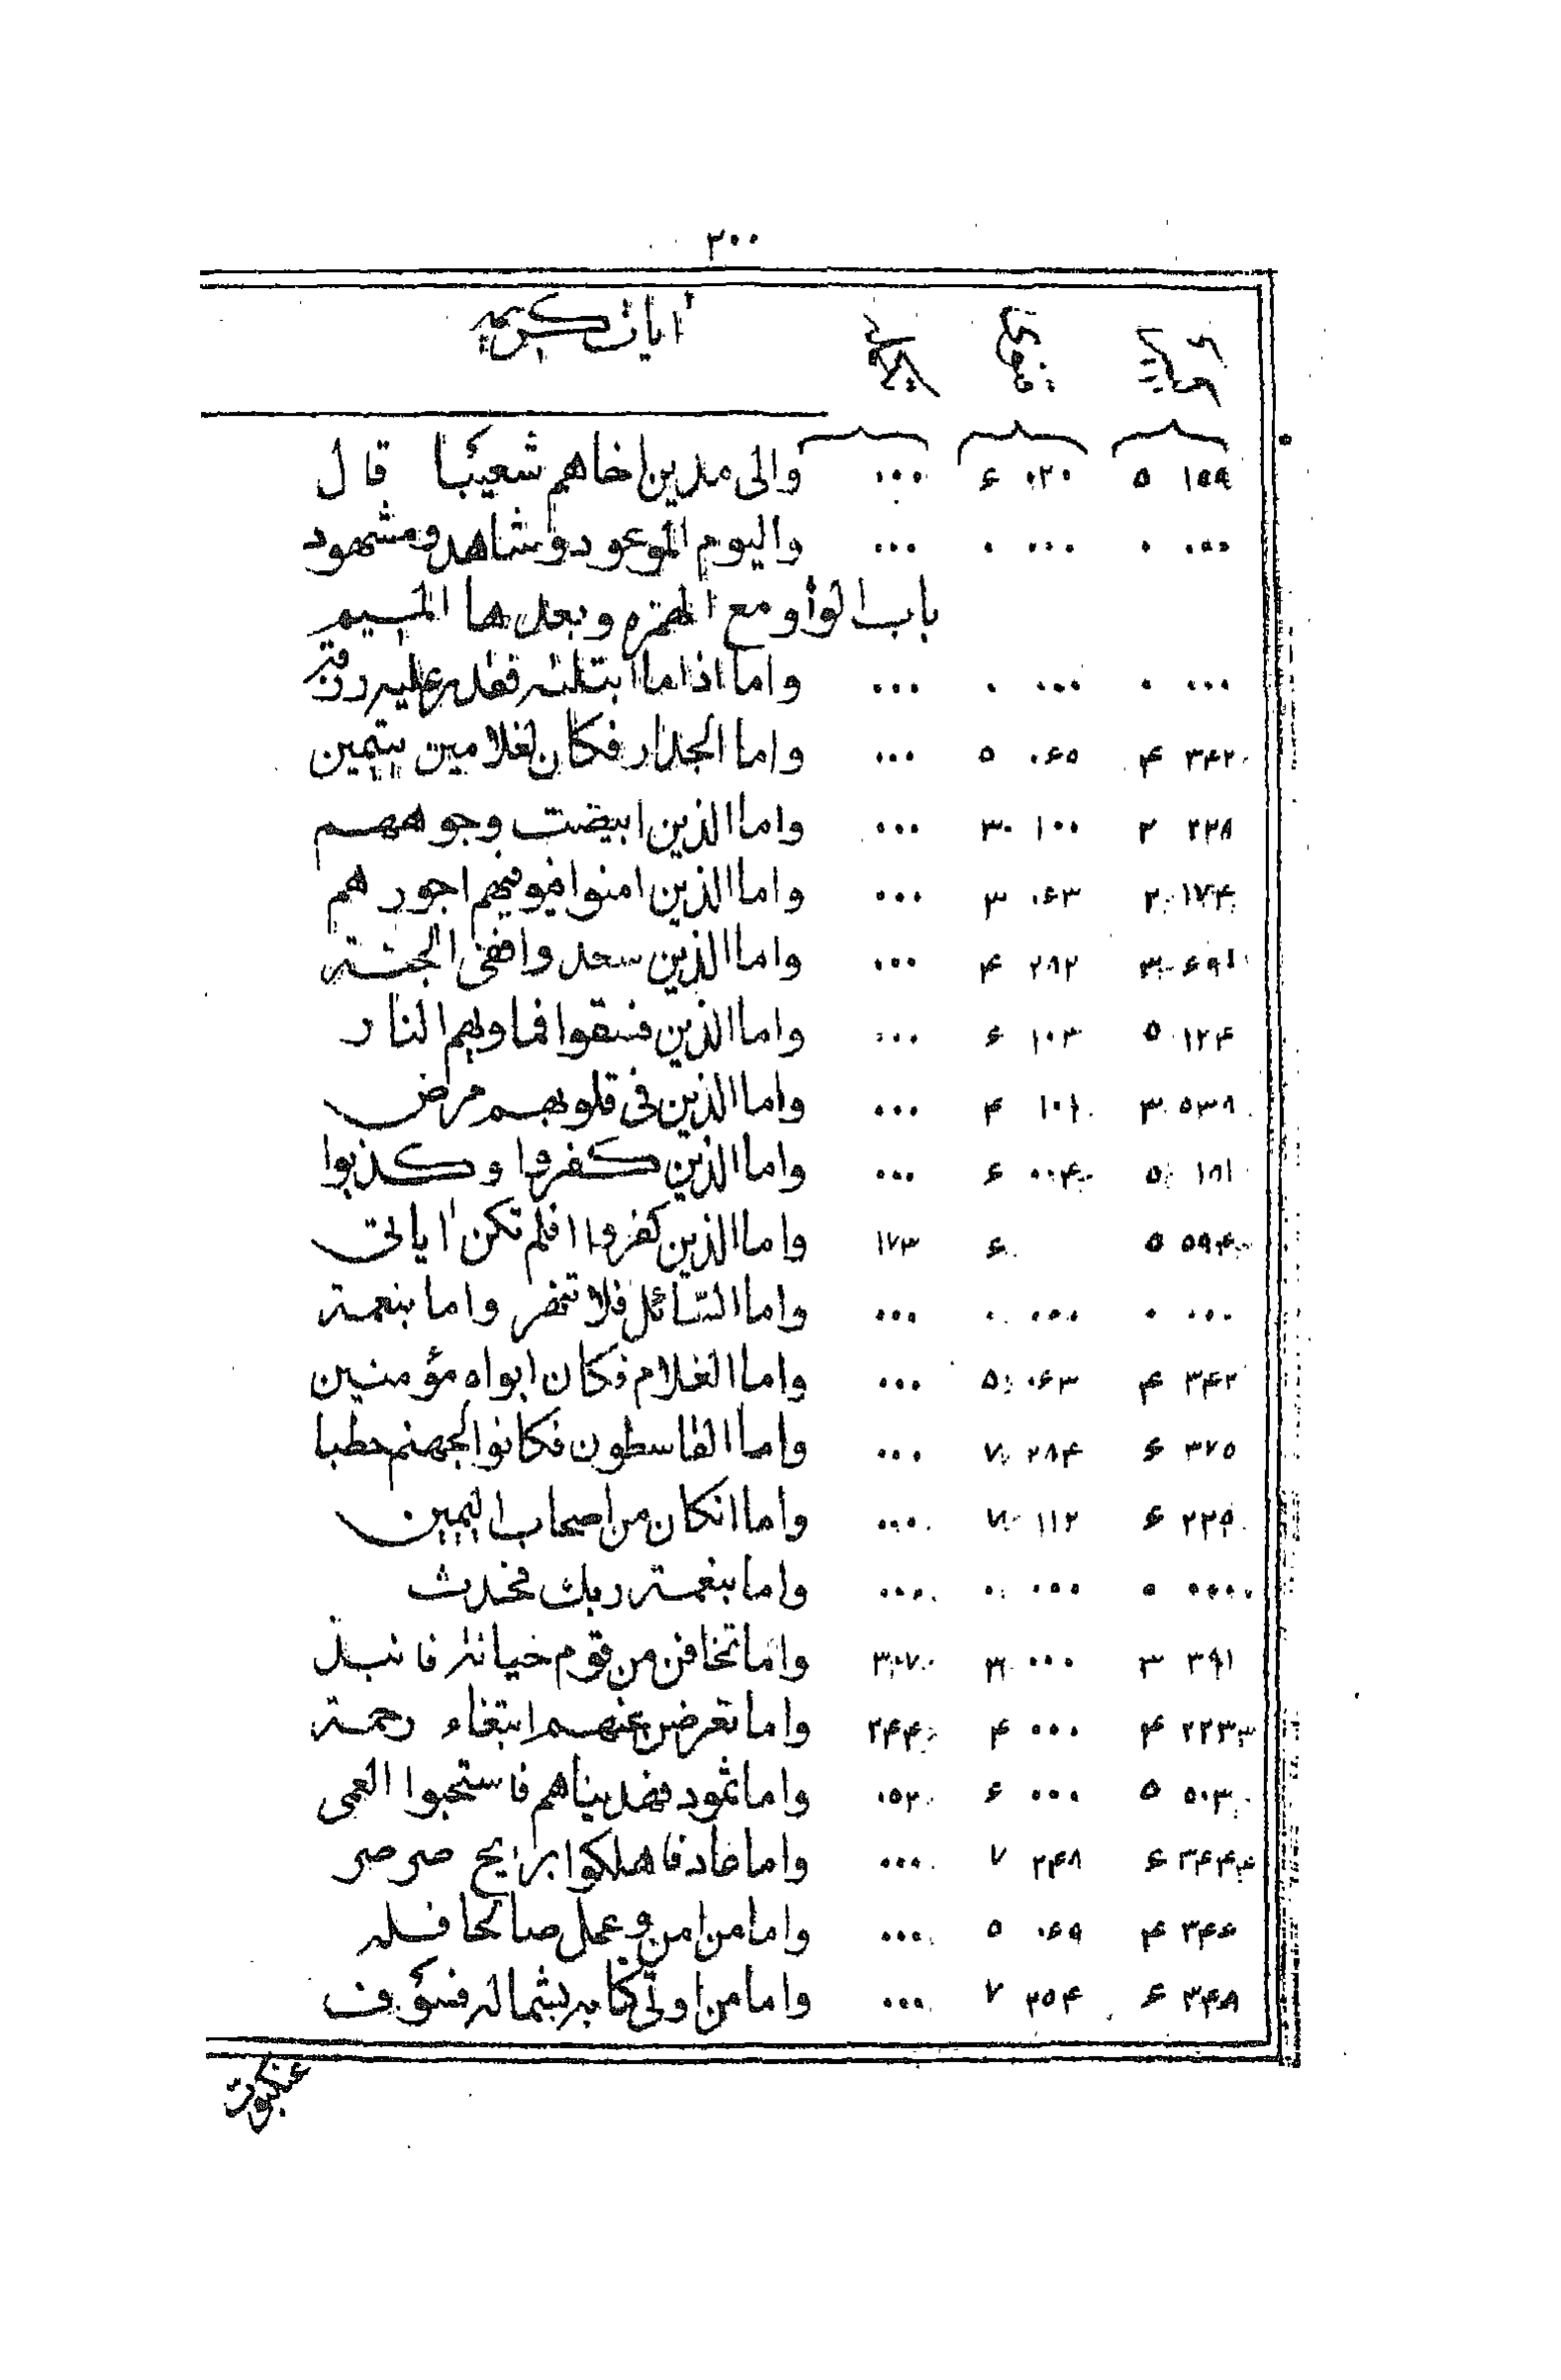 ٣٠٠
اٰيات كريمه
١٥٩ ٥ ٠٢٠ ۶ ٠٠٠ والى مدين اخاهم شعيبا قال
٠٠٠ ٠ ٠٠٠ ٠ ٠٠٠ واليوم الموعود وشاهد ومشهود
باب الواو مع الهمزه وبعدها الميم
٠٠٠ ٠ ٠٠٠ ٠ ٠٠٠ واما اذا ما ابتلٰه فقدر عليه رزقه
٣۴٢ ۴ ٠۶٥ ٥ ٠٠٠ واما الجدار فكان لغلامين يتيمين
٢٢٨ ٢ ١٠٠ ٣ ٠٠٠ واما الذين ابيضت وجوههم
١٧۴ ٢ ٠۶٣ ٣ ٠٠٠ واما الذين امنوا فيوفيهم اجورهم
۶٩١ ٣ ٢٨٢ ۴ ٠٠٠ واما الذين سعدوا ففى الجنة
١٢۴ ٥ ١٠٣ ۶ ٠٠٠ واما الذين فسقوا فماويهم النار
٥٣٨ ٣ ١٠١ ۴ ٠٠٠ واما الذين فى قلوبهم مرض
١٨١ ٥ ٠٠۴ ۶ ٠٠٠ واما الذين كفروا وكذبوا
٥٩۴ ٥ ۶ ١٧٣ واما الذين كفروا افلم تكن اٰياتى
٠٠٠ ٠ ٠٠٠ ٠ ٠٠٠ واما السّائل فلا تنهر واما بنعمة
٣۴٢ ۴ ٠۶٣ ٥ ٠٠٠ واما الغلام فكان ابواه مؤمنين
٣٧٥ ۶ ٢٨۴ ٧ ٠٠٠ واما القاسطون فكانوا لجهنم حطبا
٢٢٥ ۶ ١١٢ ٧ ٠٠٠ واما انكان من اصحاب اليمين
٠٠٠ ٠ ٠٠٠ ٠ ٠٠٠ واما بنعمة ربك فحدث
٣٩١ ٣ ٠٠٠ ٣ ٣٠٧ واما تخافن من قوم خيانة فانبذ
٢٢٣ ۴ ٠٠٠ ۴ ٢۴۴ واما تعرضن عنهم ابتغاء رحمة
٥٠٣ ٥ ٠٠٠ ۶ ٠٥٢ واما ثمود فهديناهم فاستحبوا العمى
٣۴۴ ۶ ٢۴٨ ٧ ٠٠٠ واما عاد فاهلكوا بريح صرصر
٣۴۶ ۴ ٠۶٩ ٥ ٠٠٠ واما من امن وعمل صالحا فله
٣۴٨ ۶ ٢٥۴ ٧ ٠٠٠ واما من اوتى كتابه بشماله فسوف
عنكبوت